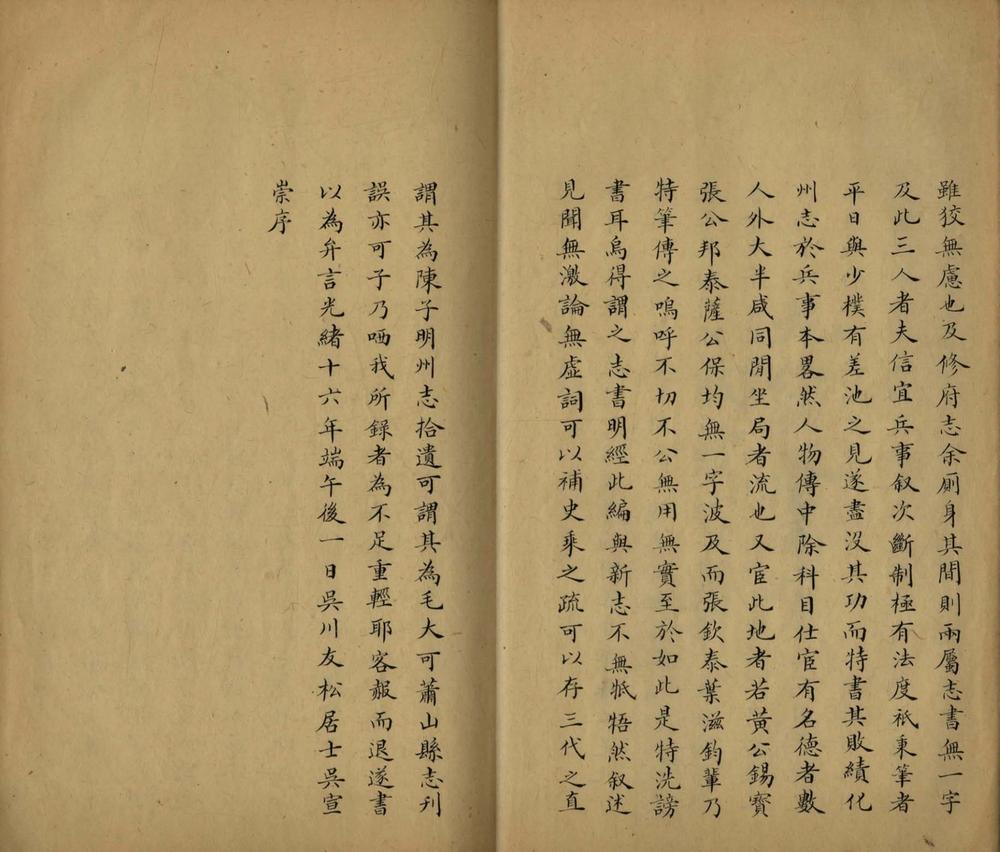 雖狡無慮也及修府志余廁身其間則兩屬志書無一字
及此三人者夫信宜兵事叙次斷制極有法度祇秉筆者
平日與少樸有差池之見遂盡沒其功而特書其敗績化
州志於兵事本畧然人物傳中除科目仕宦有名德者數
人外大半咸同閒坐局者流也又宦此地者若黃公錫寶
張公邦泰薩公保均無一字波及而張欽泰葉滋鈞輩乃
特筆傳之嗚呼不切不公無用無實至於如此是特洗謗
書耳烏得謂之志書明經此編與新志不無牴牾然叙述
見聞無激論無虛詞可以補史乘之疏可以存三代之直
謂其為陳子明州志拾遺可謂其為毛大可蕭山縣志刋
誤亦可子乃哂我所錄者為不足重輕耶客赧而退遂書
以為弁言光緒十六年端午後一日吳川友松居士吳宣
崇序